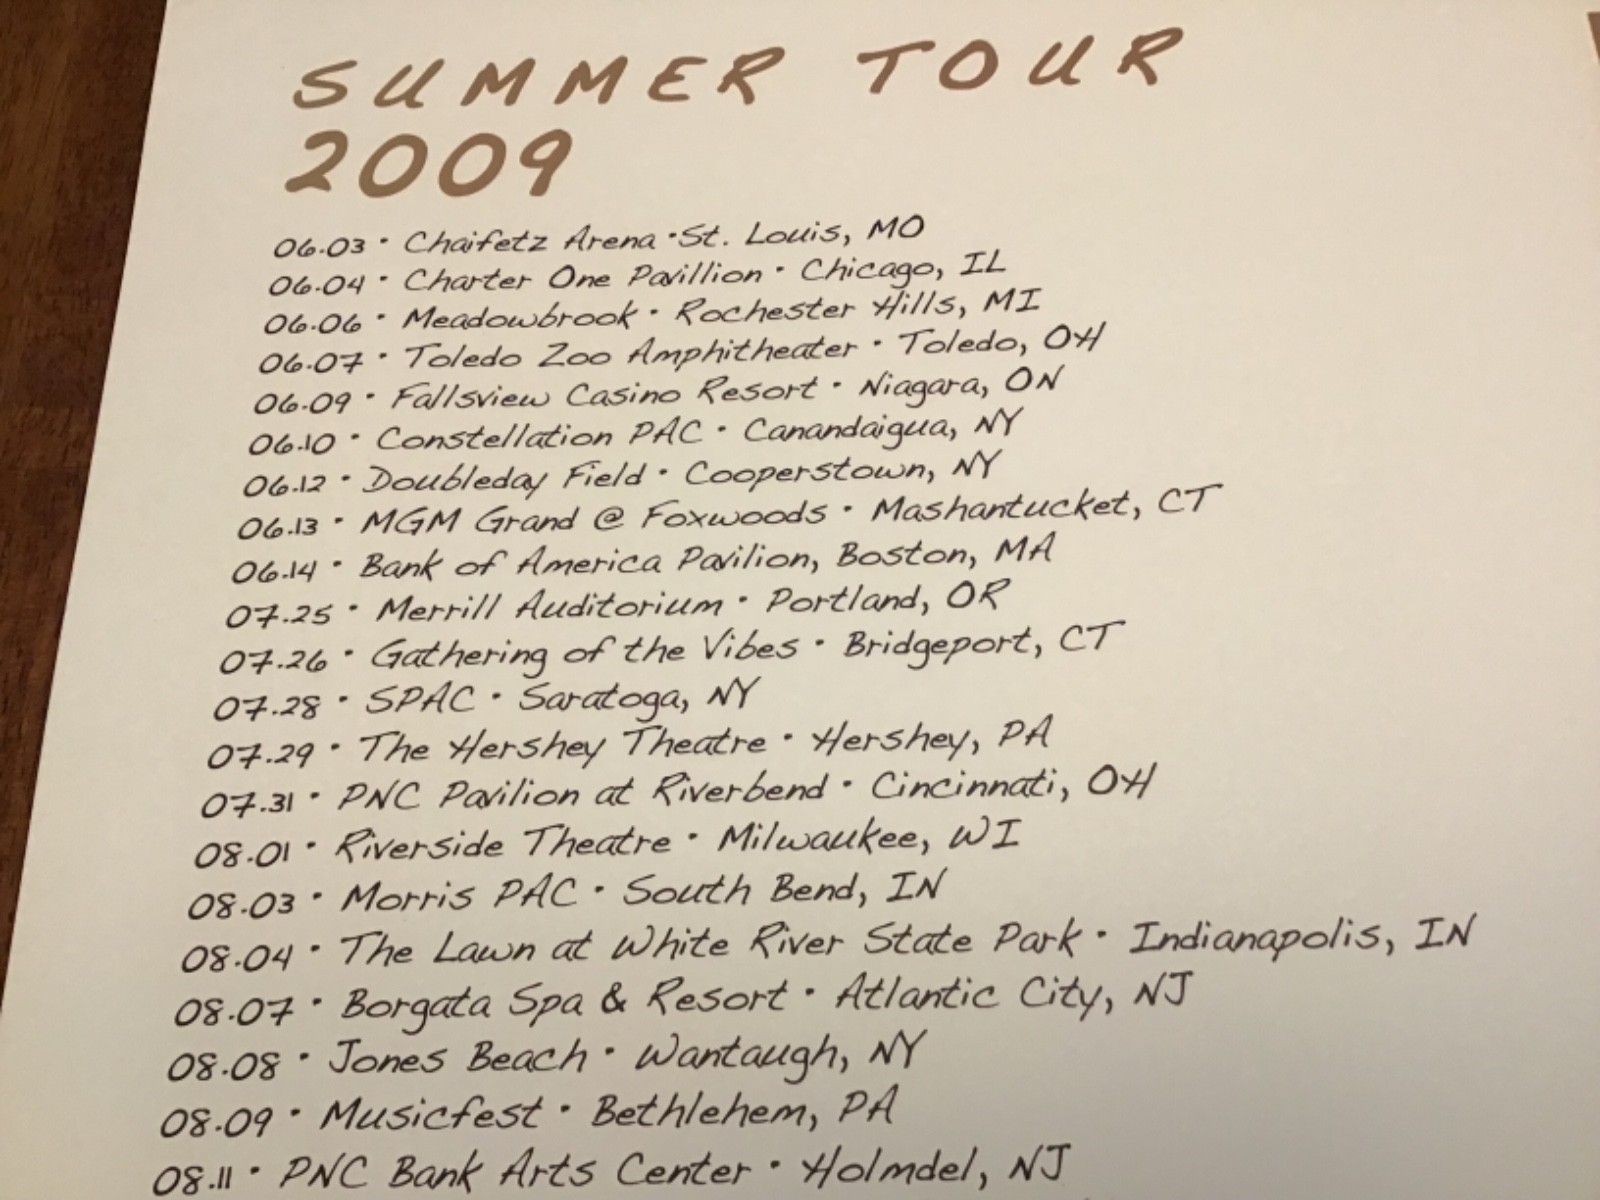 SUMMER TOUR
2009
06.03 · Chaifetz Arena · St. Louis, MO
06.04 · Charter One Pavillion · Chicago, IL
06.06 · Meadowbrook · Rochester Hills, MI
06.07 · Toledo Zoo Amphitheater · Toledo, OH
06.09 · Fallsview Casino Resort · Niagara, ON
06.10 · Constellation PAC · Canandaigua, NY
06.12 · Doubleday Field · Cooperstown, NY
06.13 · MGM Grand @ Foxwoods · Mashantucket, CT
06.14 · Bank of America Pavilion, Boston, MA
07.25 · Merrill Auditorium · Portland, OR
07.26 · Gathering of the Vibes · Bridgeport, CT
07.28 · SPAC · Saratoga, NY
07.29 · The Hershey Theatre · Hershey, PA
07.31 · PNC Pavilion at Riverbend · Cincinnati, OH
08.01 · Riverside Theatre · Milwaukee, WI
08.03 · Morris PAC · South Bend, IN
08.04 · The Lawn at White River State Park · Indianapolis, IN
08.07 · Borgata Spa & Resort · Atlantic City, NJ
08.08 · Jones Beach · Wantaugh, NY
08.09 · Musicfest · Bethlehem, PA
08.11 · PNC Bank Arts Center · Holmdel, NJ